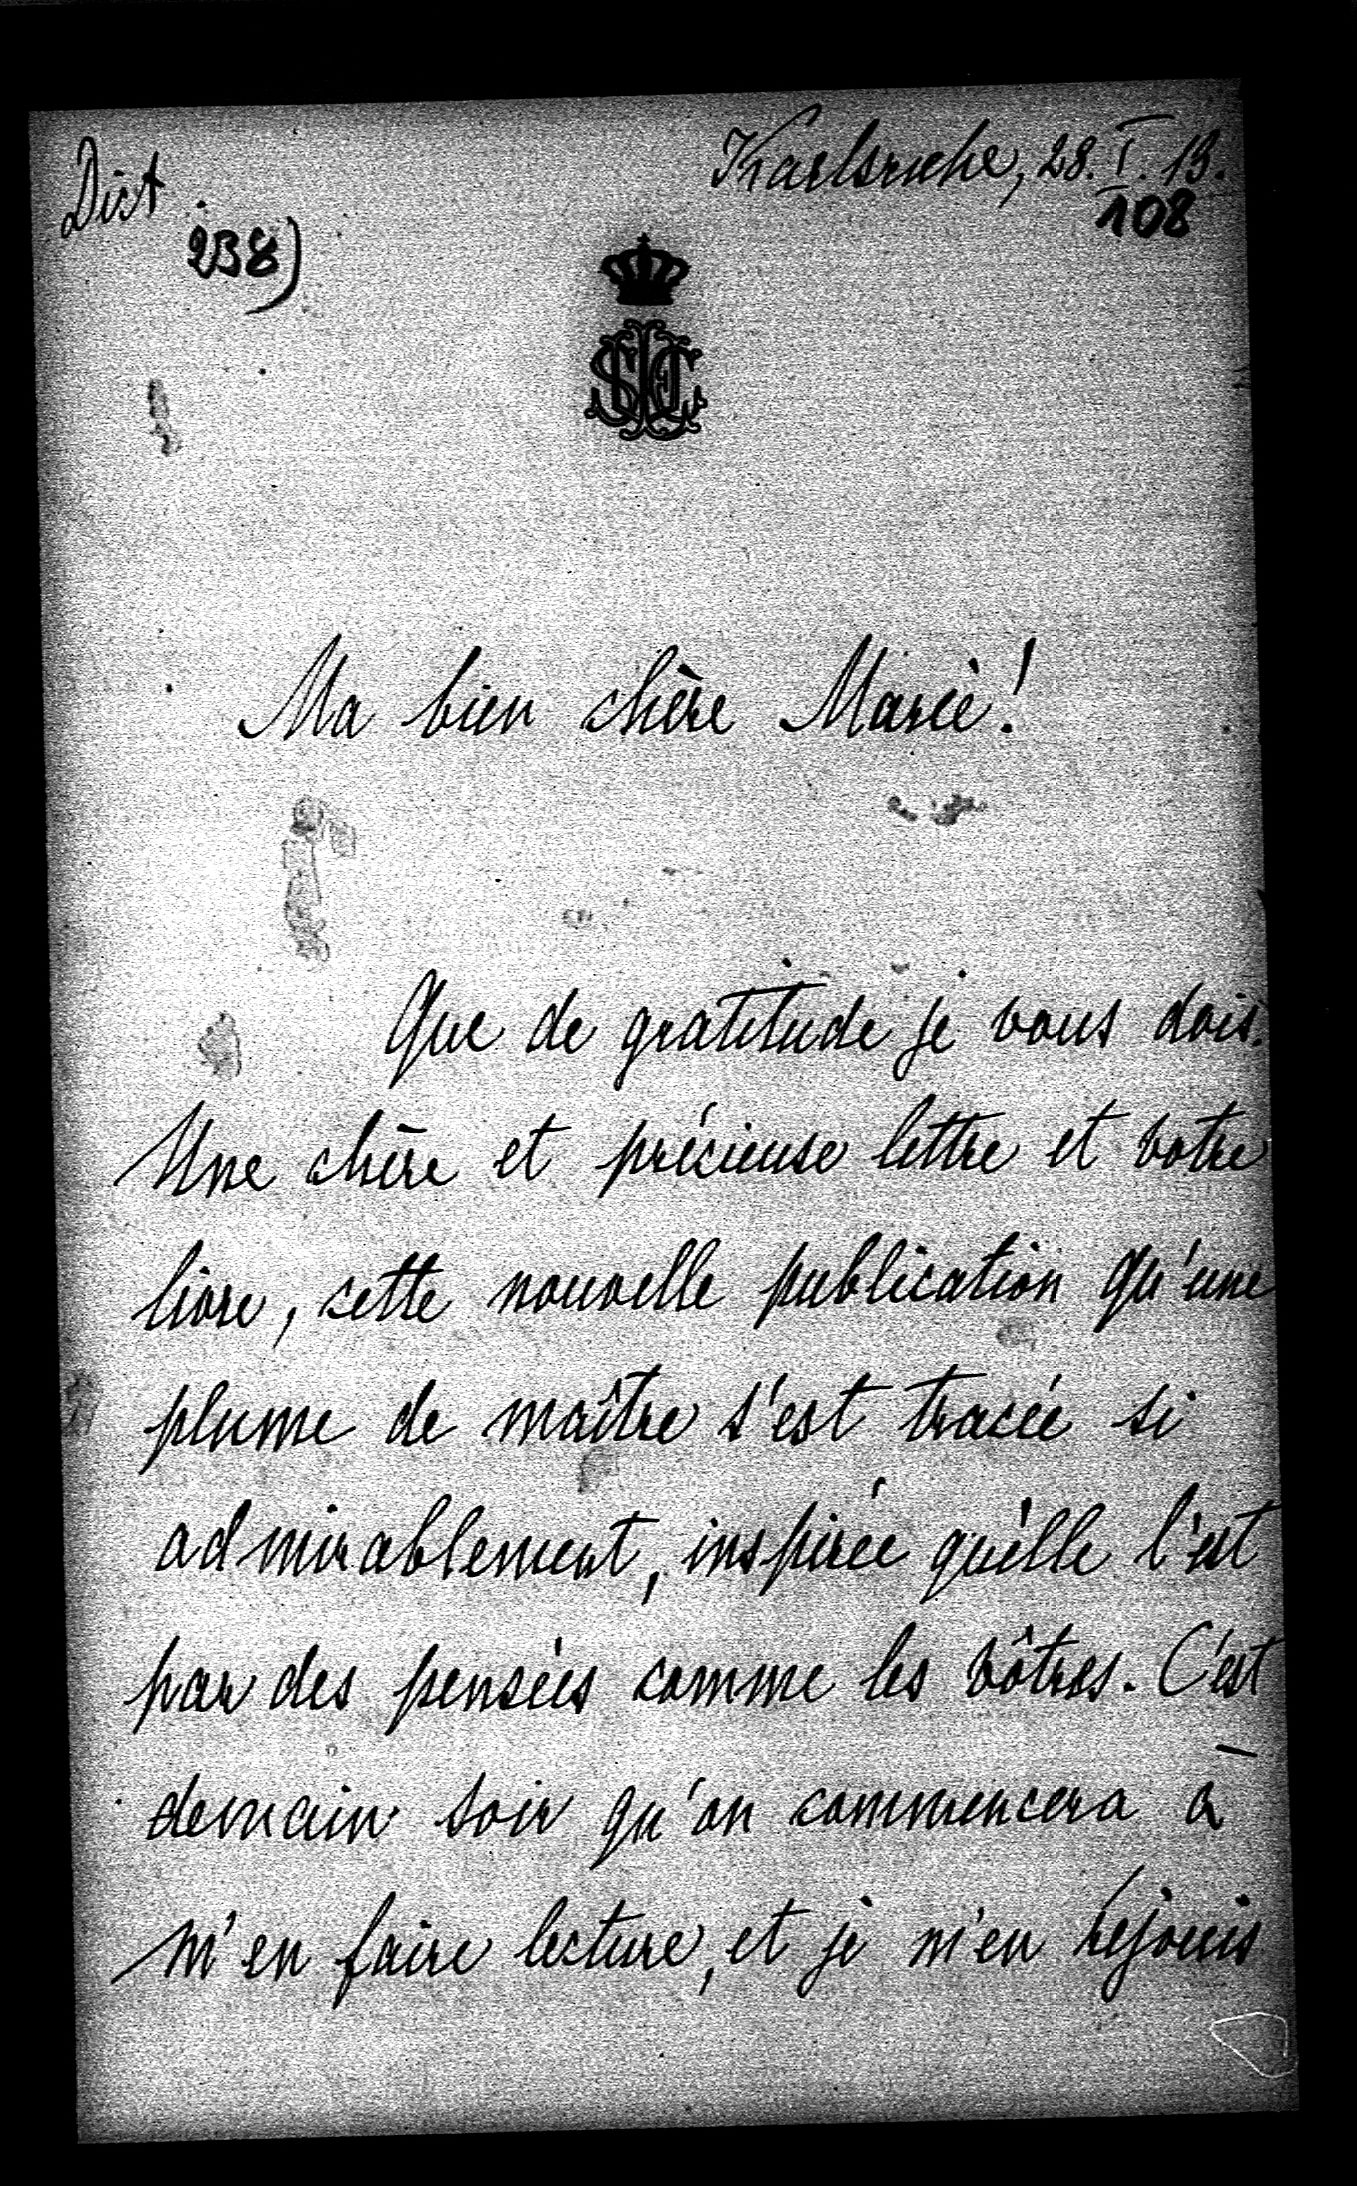 Dict.
Karlsruhe, 28. I. 13.
238)
108
Ma bien chère Marie!
Que de gratitude je vous dois.
Une chère et précieuse lettre et votre
livre, cette nouvelle publication qu'une
plume de maître s'est tracée si
admirablement, inspirée qu'elle l'est
par des pensées comme les vôtres. C'est
demain soir qu'on commencera à
m'en faire lecture, et je m'en rejouis